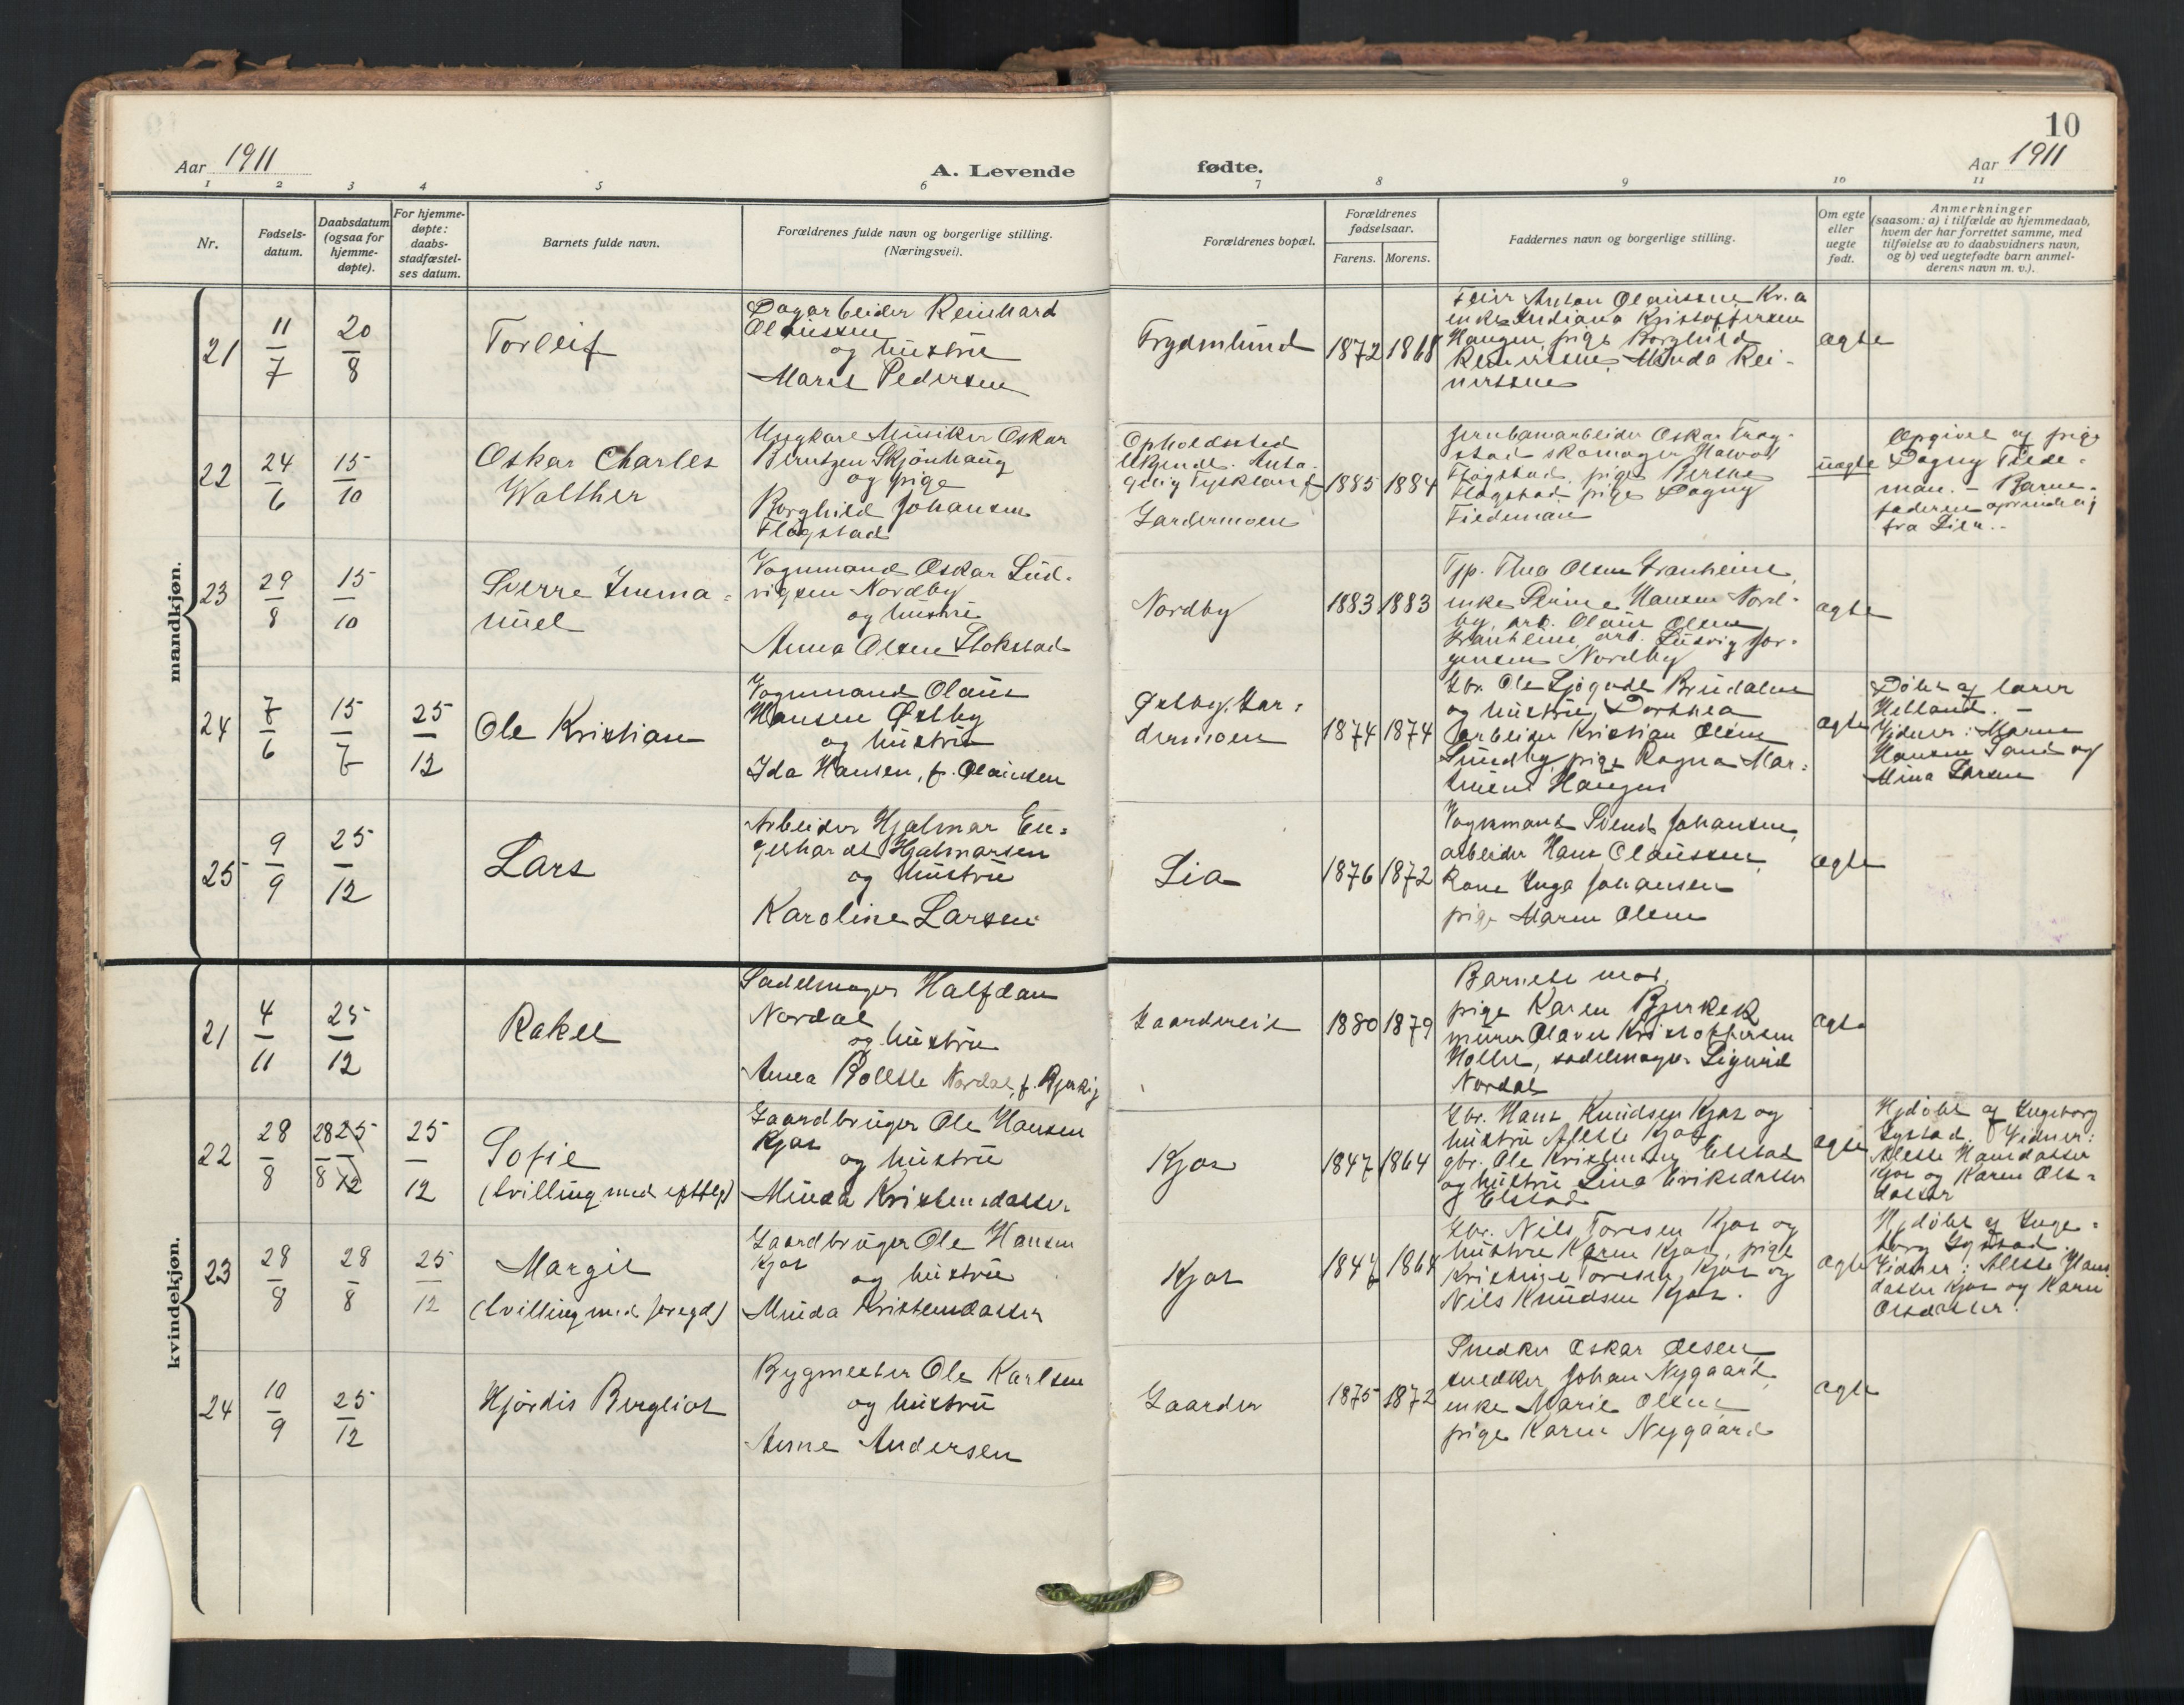 10
Aar 1911
A. Levende
fødte.
Aar 1911
1 2 3 4 5 6 7 8 9 10 11
Nr.
Fødsels-
datum.
Daabsdatum
(ogsaa for
hjemme-
døpte).
For hjemme-
døpte:
daabs-
stadfæstel-
ses datum.
Barnets fulde navn.
Forældrenes fulde navn og borgerlige stilling.
(Næringsvei).
Forældrenes bopæl.
Forældrenes
fødselsaar.
Farens. Morens.
Faddernes navn og borgerlige stilling.
Om egte
eller
uegte
født.
Anmerkninger
(saasom: a) i tilfælde av hjemmedaab,
hvem der har forrettet samme, med
tilføielse av to daabsvidners navn,
og b) ved uegtefødte barn anmel-
derens navn m. v.).
mandkjøn.
21
11/7
20/8
Torleif
Dagarbeider Reinhard
Olaussen
og hustru
Marie Pedersen
1872 1868
Anton Olaussen
enke Indiana Kristoffersen
Haugen, pige Borghild
Minda Rei-
nertsen
ægte
22
24/6
15/10
Oskar Charles
Walther
Ungkarl Musiker Oskar
Berntzen Skjønhaug
og pige
Borghild Johansen
Flogstad
Opholdssted
Ukjendt. Anta-
gelig Tyskland
Gardermoen
1885 1884
Jernbanarbeider Oskar Trøg-
stad skomager Halvor
Flogstad, pige Berthe
Flogstad pige Dagny
Tiedeman
uægte
Opgivet af pige
Dagny Tiede-
man. - Barne-
faderen oprindelig
fra Lier. -
23
29/8
15/10
Sverre Imma-
nuel
Vognmand Oskar Lud-
vigsen Nordby
og hustru
Anna Olsen Stokstad
Nordby
1883 1883
Tjp. Thea Olsen Granheim,
enke Hansen Nord-
by, arb. Olaus Olsen
Granheim, arb. Ludvig Jør-
gensen Nordby
ægte
24
7/6
15/7
25/12
Ole Kristian
Vognmand Olaus
Hansen Østby
og hustru
Ida Hansen, f. Olaussen
Østby, Gar-
dermoen
1874 1874
Gbr. Ole Brudalen
og hustru Dorthea
arbeider Kristian Olsen
Sundby, pige Ragna Mar-
Haugen
ægte
Døbt af lærer
Helland. -
Vidner: Maren
Hansen Sand og
Mina Larsen
25
9/9
25/12
Lars
Arbeider Hjalmar En-
gelhardt Hjalmarsen
og hustru
Karoline Larsen
Lia
1876 1872
Vognmand Svend Johansen,
arbeider Hans Olaussen,
Kone Inga Johansen
pige Maren Olsen
ægte
kvindekjøn.
21
4/11
25/12
Rakel
Sadelmager Halfdan
Nordal
og hustru
Anna Bolette Nordal, f.
Gaardereie
1880 1879
Barnets mor,
pige Karen
murer Olaves Kristoffersen
Holter, sadelmager Sigurd
Nordal
ægte
22
28/8
28/8 25/12
25/12
Sofie
(tvilling med eftflg)
Gaardbruger Ole Hansen
Kjos
og hustru
Minda Kristensdatter
Kjos
1847 1864
Gbr. Hans Knudsen Kjos og
hustru Alette Kjos
gbr. Ole Kristensen Elstad
og hustru Lina Eriksdatter
Elstad
ægte
Hjdøbt af Ingeborg
Lystad. Vidner:
Alette Hansdatter
Kjos og Karen Ols-
datter
23
28/8
28/8
25/12
Margit
(tvilling med foregd)
Gaardbruger Ole Hansen
Kjos
og hustru
Minda Kristensdatter
Kjos
1847 1864
Gbr. Nils Toresen Kjos og
hustru Karen Kjos, pige
Kristine Toresen Kjos og
Nils Knudsen Kjos.
ægte
Hjdøbt af Inge-
borg Lystad.
Vidner: Alette Hans
datter Kjos og Karen
Olsdatter.
24
10/9
25/12
Hjørdis Bergliot
Bygmester Ole Karlsen
og hustru
Anne Andersen
Gaarder
1875 1872
Snedker Oskar Olsen
snedker Johan Nygaard,
enke Marie Olsen
pige Karen Nygaard
ægte